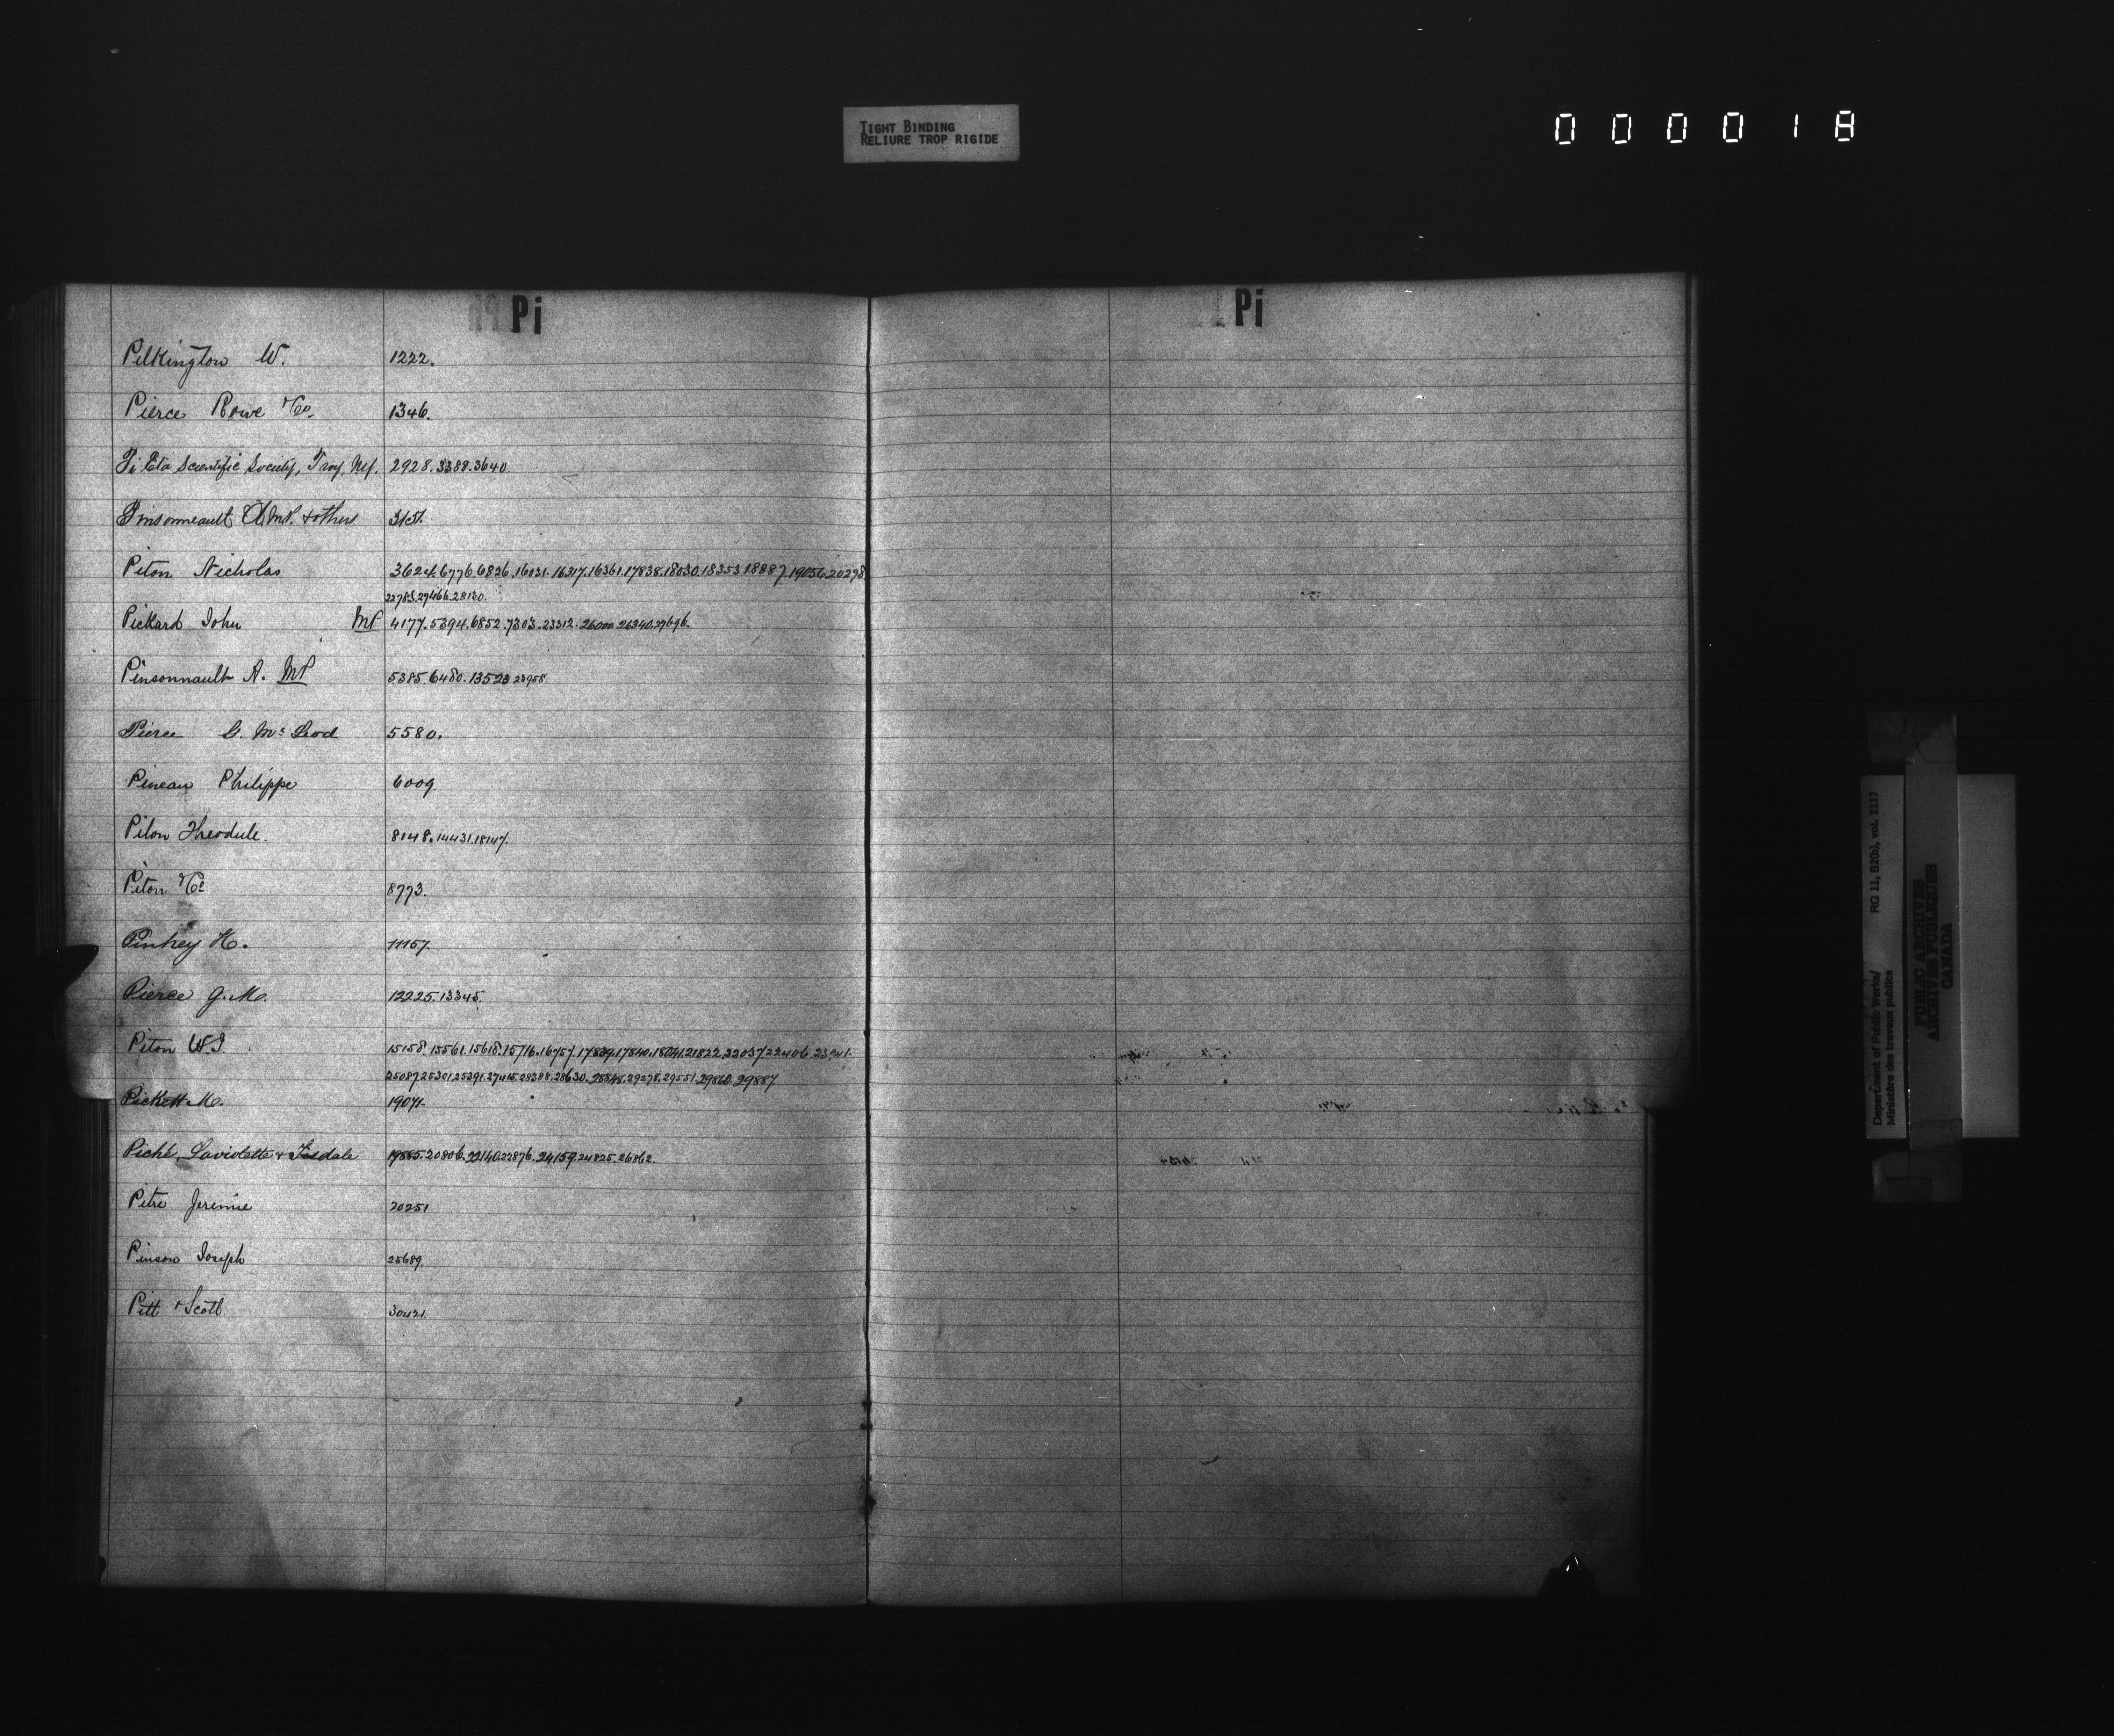 TIGHT BINDING
RELIURE TROP RIGIDE
0 0 0 0 1 8
Pi
Pilkington W. 1222.
Pierce Rowe & Co. 1346.
Pi Eta Scientific Society, Troy, NY. 2928.3388.3640
Pinsonneault A MP. & others 3151.
Piton Nicholas 3624.6776.6826.16031.16317.16361.17838.18030.18353.18887.19056.20298
22783.27466.28130.
Pickard John MP 4177.5394.6852.7303.23312.26000.26340.27696.
Pinsonnault A. MP 5385.6480.13523 23958
Pierce G. McLeod 5580.
Pineau Philippe 6009
Pilon Theodule. 8148.14431.18147.
Piton & Co 8773.
Pinhey H. 11157.
Pierce G. M. 12225.13345.
Piton W.J. 15158.15561.15618.15716.16757.17839.17840.18041.21822.22037.22406.23941.
25087.25301.25391.27415.28388.28630.28848.29278.29551.29860.29887
Pickett M. 19071.
Piché, Laviolette & Tisdale 19555.20806.22140.22876.24159.24825.26862.
Pitre Jeremie 20251
Pinson Joseph 25689.
Pitt & Scott 30421
Pi
Department of Public Works/
Ministère des travaux publics
RG 11, B2(b), vol. 2117
PUBLIC ARCHIVES
ARCHIVES PUBLIQUES
CANADA